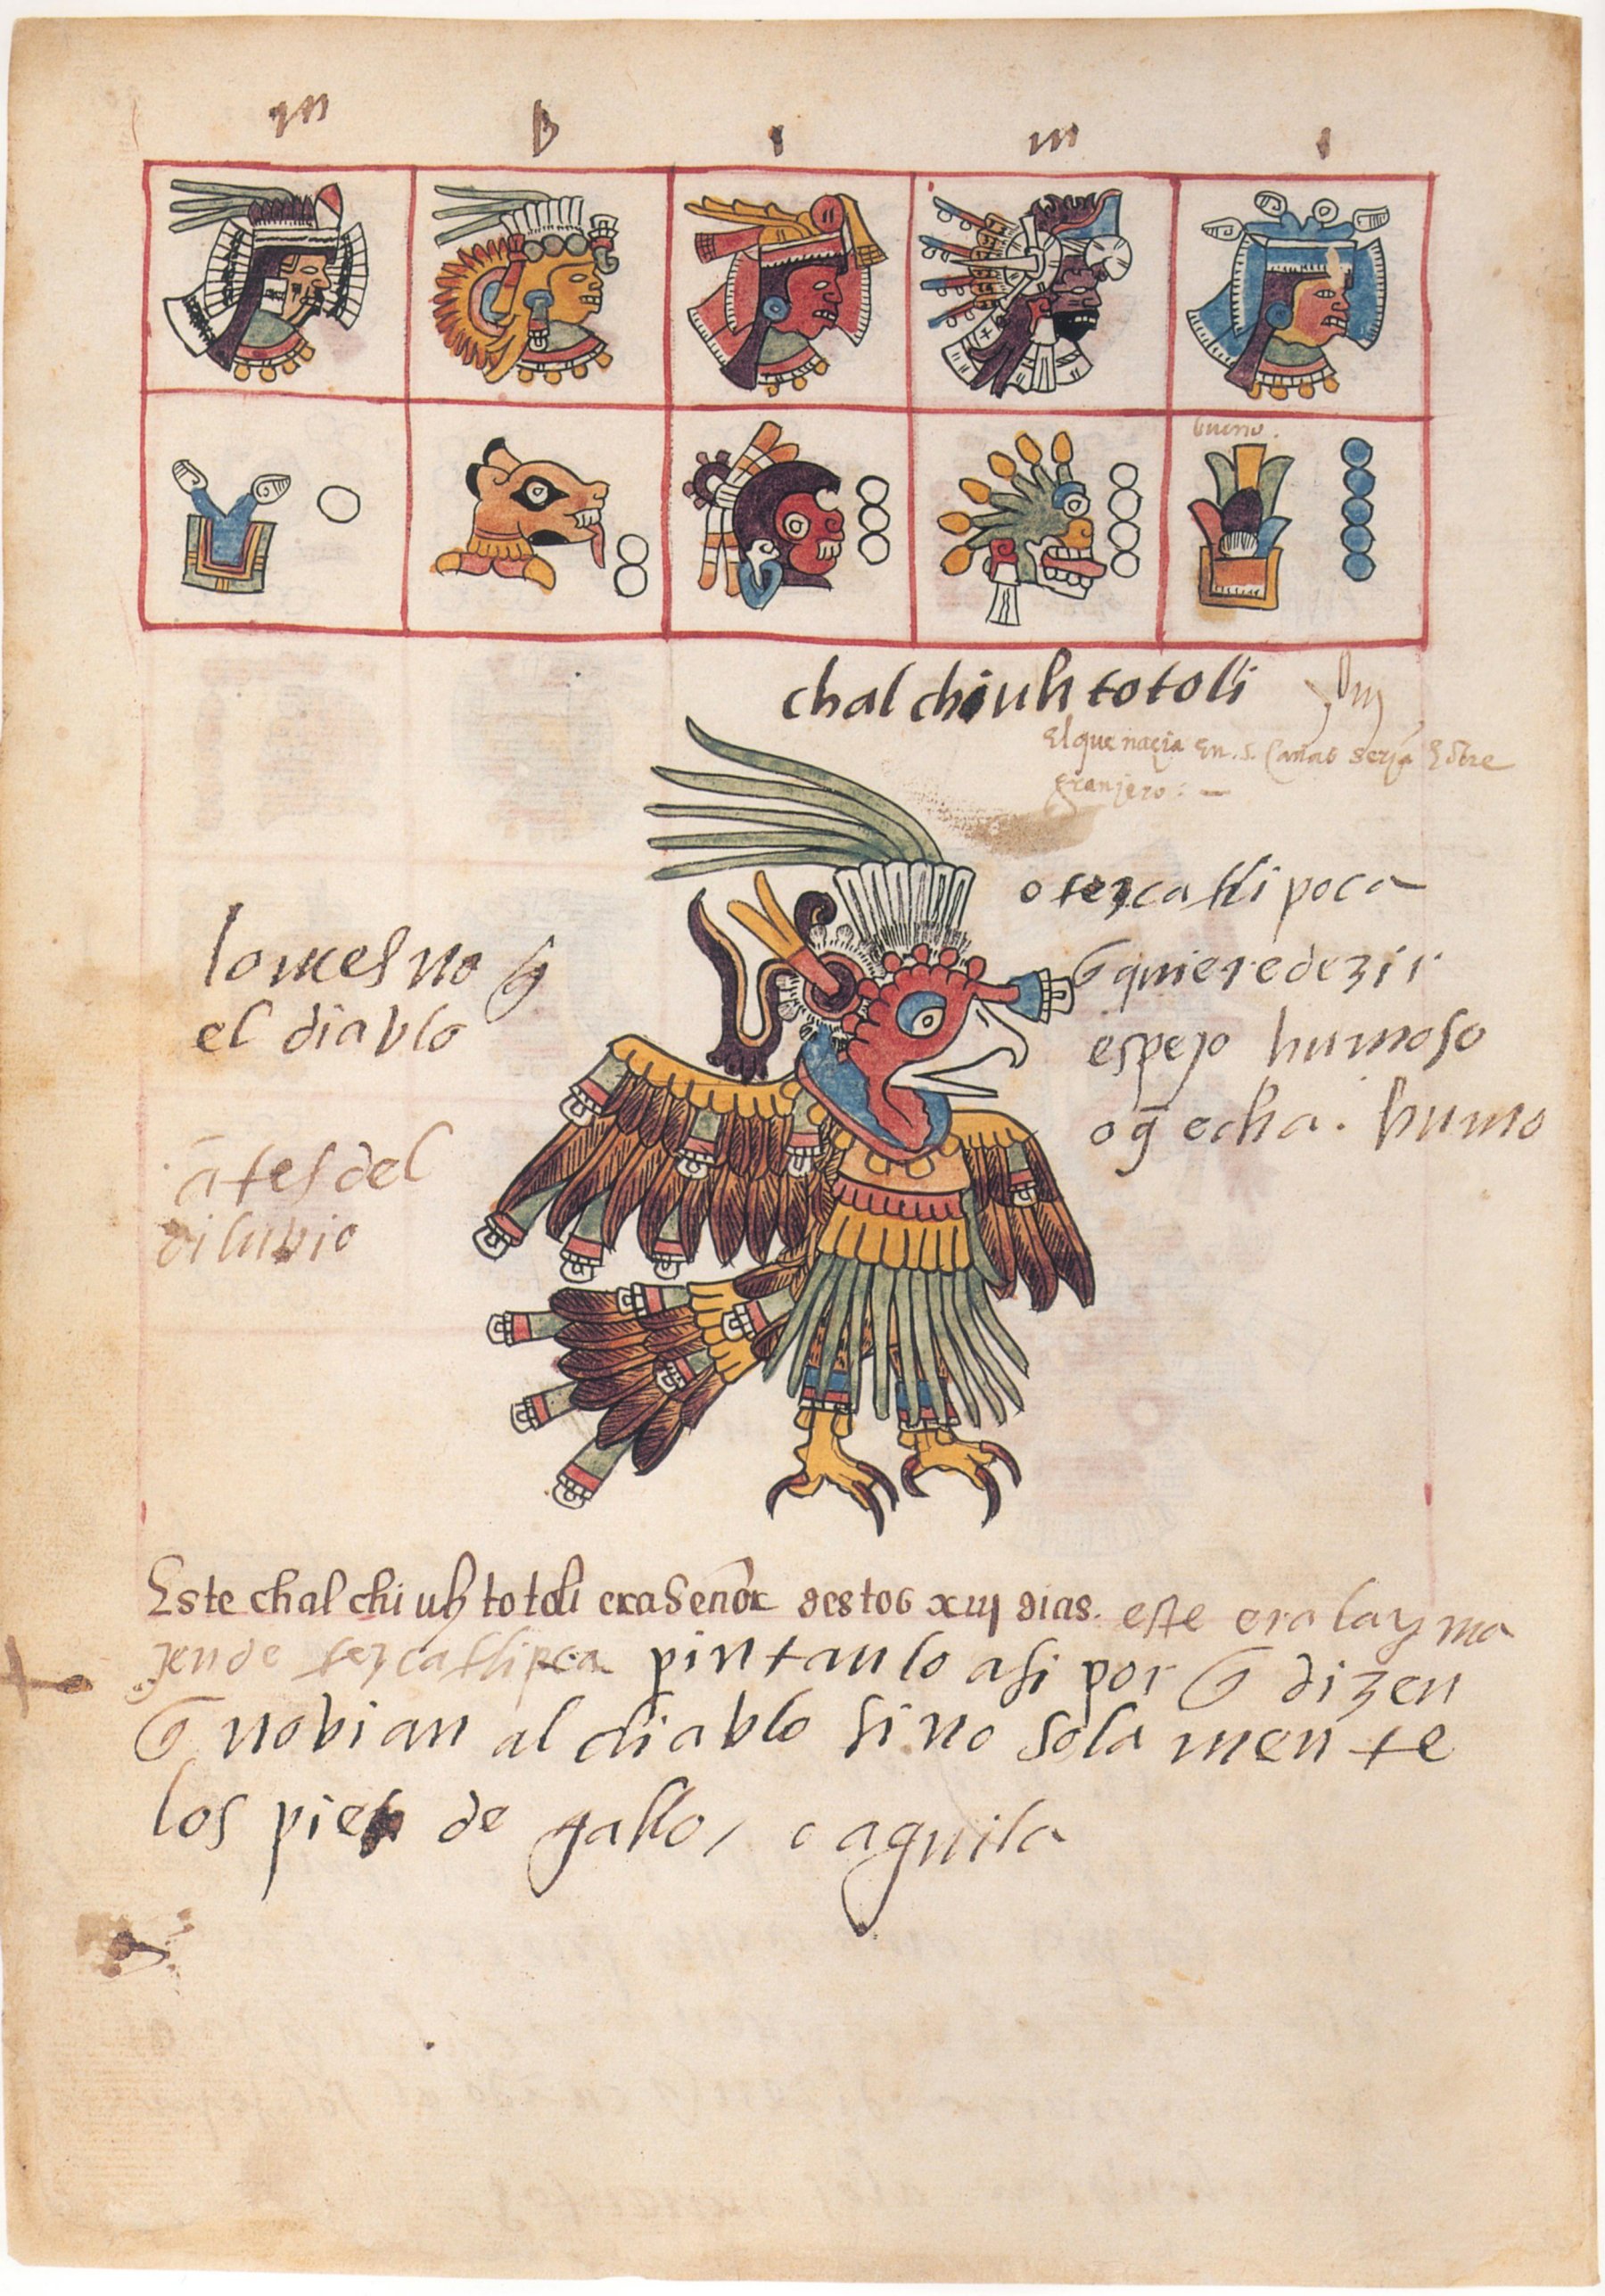 m b i m i
bueno.
chalchiuhtotoli
El que naçia en .5. Cañas serja
granjero: —
o tezcatlipoca
q̄ quiere dezir
espejo humoso
o q̄ echa . humo
lo mesmo q̄
el diablo
ātes del
dilubio
Este chalchiuhtotoli era Señor destos xiij dias. este era la yma
jen de tezcatlipoca pintanlo asi por q̄ dizen
q̄ no bian al diablo sino sola mente
los pies de gallo, o aguila